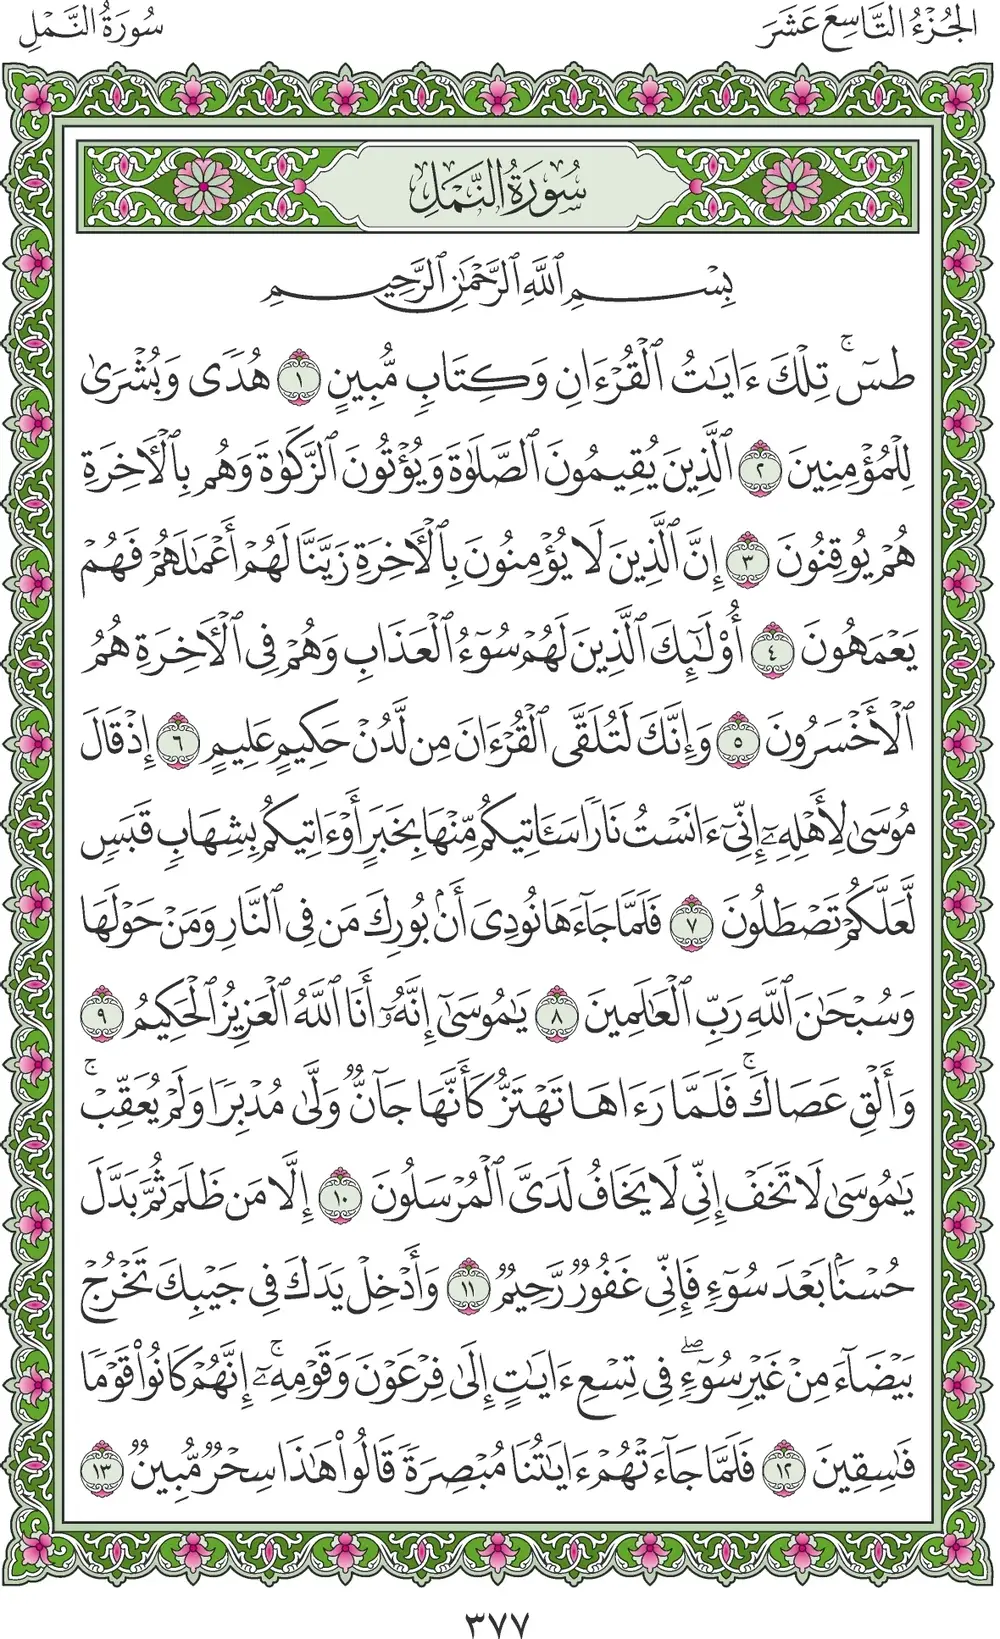 الجُزْءُ التَّاسِعَ عَشَرَ
سُورَةُ النَّمْلِ
سُورَةُ النَّمْلِ
بِسْمِ ٱللَّهِ ٱلرَّحْمَٰنِ ٱلرَّحِيمِ
طسٓۚ تِلْكَ ءَايَٰتُ ٱلْقُرْءَانِ وَكِتَابٍ مُّبِينٍ ١ هُدًى وَبُشْرَىٰ
لِلْمُؤْمِنِينَ ٢ ٱلَّذِينَ يُقِيمُونَ ٱلصَّلَوٰةَ وَيُؤْتُونَ ٱلزَّكَوٰةَ وَهُم بِٱلْأَخِرَةِ
هُمْ يُوقِنُونَ ٣ إِنَّ ٱلَّذِينَ لَا يُؤْمِنُونَ بِٱلْأَخِرَةِ زَيَّنَّا لَهُمْ أَعْمَٰلَهُمْ فَهُمْ
يَعْمَهُونَ ٤ أُوْلَٰٓئِكَ ٱلَّذِينَ لَهُمْ سُوٓءُ ٱلْعَذَابِ وَهُمْ فِى ٱلْأَخِرَةِ هُمُ
ٱلْأَخْسَرُونَ ٥ وَإِنَّكَ لَتُلَقَّى ٱلْقُرْءَانَ مِن لَّدُنْ حَكِيمٍ عَلِيمٍ ٦ إِذْ قَالَ
مُوسَىٰ لِأَهْلِهِۦٓ إِنِّىٓ ءَانَسْتُ نَارًا سَـَٔاتِيكُم مِّنْهَا بِخَبَرٍ أَوْ ءَاتِيكُم بِشِهَابٍ قَبَسٍ
لَّعَلَّكُمْ تَصْطَلُونَ ٧ فَلَمَّا جَآءَهَا نُودِىَ أَنۢ بُورِكَ مَن فِى ٱلنَّارِ وَمَنْ حَوْلَهَا
وَسُبْحَٰنَ ٱللَّهِ رَبِّ ٱلْعَٰلَمِينَ ٨ يَٰمُوسَىٰٓ إِنَّهُۥٓ أَنَا ٱللَّهُ ٱلْعَزِيزُ ٱلْحَكِيمُ ٩
وَأَلْقِ عَصَاكَۚ فَلَمَّا رَءَاهَا تَهْتَزُّ كَأَنَّهَا جَآنٌّ وَلَّىٰ مُدْبِرًا وَلَمْ يُعَقِّبْۚ
يَٰمُوسَىٰ لَا تَخَفْ إِنِّى لَا يَخَافُ لَدَىَّ ٱلْمُرْسَلُونَ ١٠ إِلَّا مَن ظَلَمَ ثُمَّ بَدَّلَ
حُسْنًۢا بَعْدَ سُوٓءٍ فَإِنِّى غَفُورٌ رَّحِيمٌ ١١ وَأَدْخِلْ يَدَكَ فِى جَيْبِكَ تَخْرُجْ
بَيْضَآءَ مِنْ غَيْرِ سُوٓءٍۖ فِى تِسْعِ ءَايَٰتٍ إِلَىٰ فِرْعَوْنَ وَقَوْمِهِۦٓۚ إِنَّهُمْ كَانُوا۟ قَوْمًا
فَٰسِقِينَ ١٢ فَلَمَّا جَآءَتْهُمْ ءَايَٰتُنَا مُبْصِرَةً قَالُوا۟ هَٰذَا سِحْرٌ مُّبِينٌ ١٣
٣٧٧